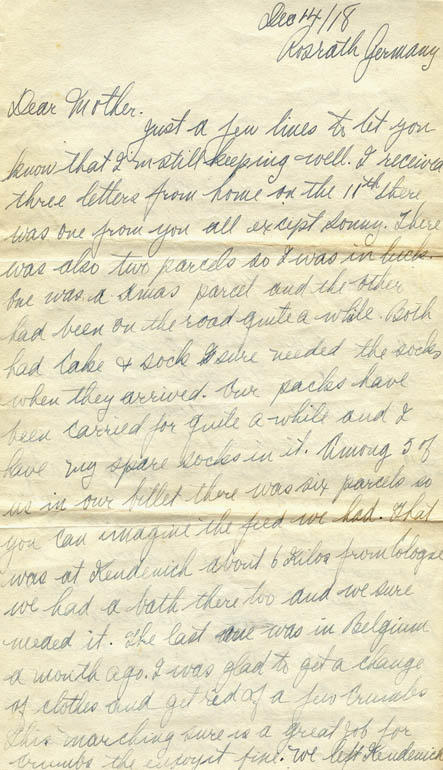 Dec 14/18
Rosrath Germany
Dear Mother.
Just a few lines to let you
know that I'm still keeping well. I received
three letters from home on the 11th there
was one from you all except Sonny. There
was also two parcels so I was in luck.
One was a Xmas parcel and the other
had been on the road quite a while. Both
had Cake & sock I sure needed the socks
when they arrived. Our packs have
been carried for quite a while and I
have my spare socks in it. Among 5 of
us in our billet there was six parcels so
you can imagine the feed we had. That
was at Kendenich about 6 Kilos from Cologne
we had a bath there too and we sure
needed it. The last one was in Belgium
a month ago. I was glad to get a change
of clothes and get red of a few Crumbs
This marching sure is a great job for
Crumbs the enjoyit fine. We left Kendenick